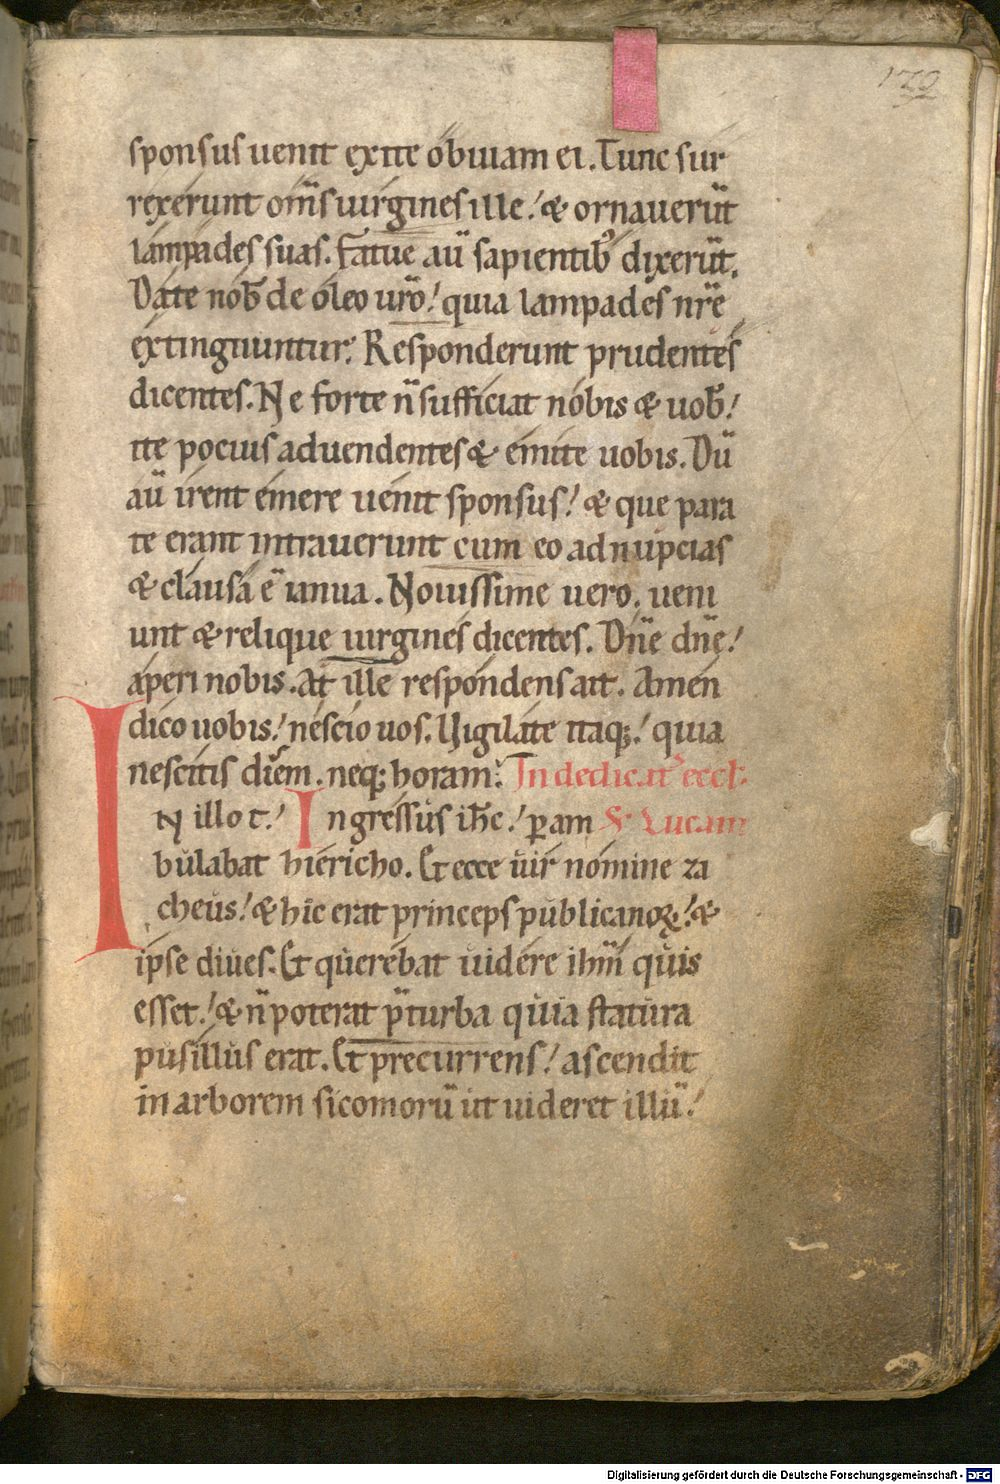 172
sponsus uenit exite obuiam ei. Tunc sur
rexerunt om̅s uirgines ille! & ornauerūt
lampades suas. Fatue aū sapientib; dixerūt.
Date nob̅ de oleo ur̅o! quia lampades nr̅e
extinguuntur. Responderunt prudentes
dicentes. Ne forte n̅ sufficiat nobis & uob̅!
ite pocius ad uendentes & emite uobis. Dū
aū irent emere uenit sponsus! & que para
te erant intrauerunt cum eo ad nupcias
& clausa e̅ ianua. Nouissime uero. ueni
unt & relique uirgines dicentes. Dn̅e dn̅e!
aperi nobis. At ille respondens ait. Amen
dico uobis! nescio uos. Uigilate itaq;! quia
nescitis diem. neq; horam. In dedicat̅ eccl̅.
IN illo t.! Ingressus ih̅c! p̲am S. Lucam
bulabat hiericho. Et ecce uir nomine za
cheus! & hic erat princeps publicanoꝝ! &
ipse diues. Et querebat uidere ihm̅ quis
esset! & n̅ poterat p̅ turba quia statura
pusillus erat. Et precurrens! ascendit
in arborem sicomorū ut uideret illū!
Digitalisierung gefördert durch die Deutsche Forschungsgemeinschaft - DFG